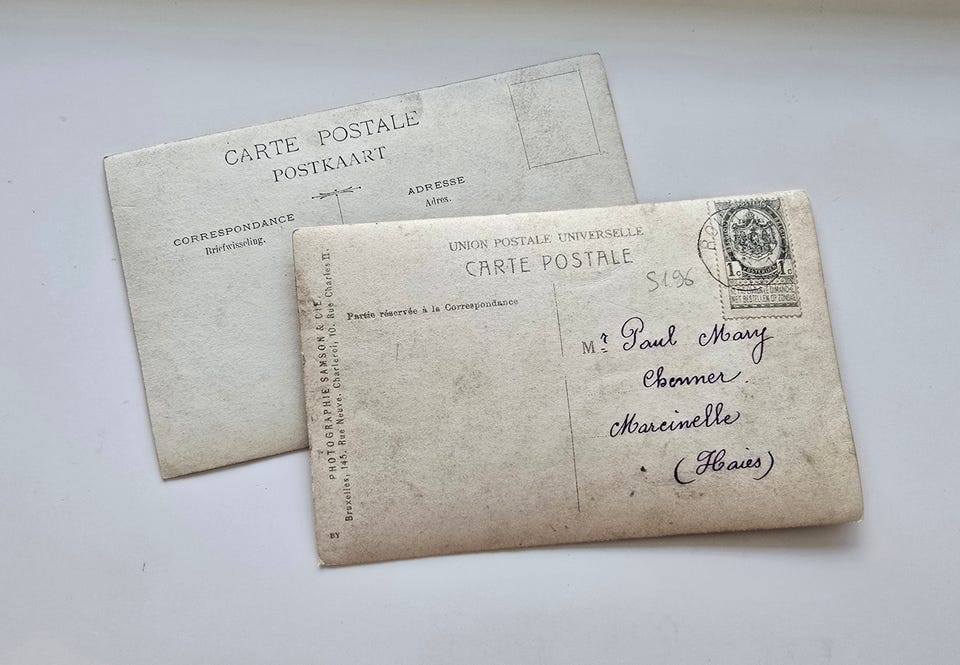 CARTE POSTALE
POSTKAART
CORRESPONDANCE
Briefwisseling.
ADRESSE
Adres.
UNION POSTALE UNIVERSELLE
CARTE POSTALE
Partie réservée à la Correspondance
S196
1c 1c
NIET BESTELLEN OP ZONDAG
Mr Paul Mary
Chonner.
Marcinelle
(Haies)
PHOTOGRAPHIE SAMSON & CIE
Bruxelles, 145, Rue Neuve. Charleroi, 10. Rue Charles II.
BY